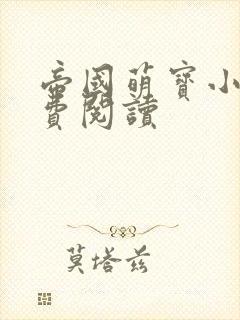 帝國萌寶小
費閱讀
莫塔茲